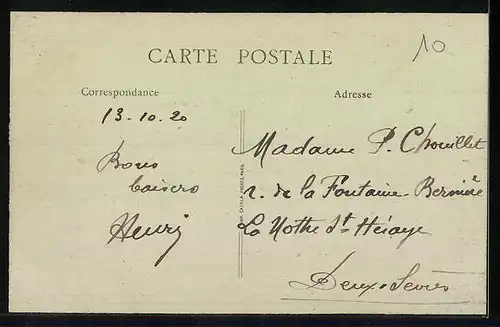 10
CARTE POSTALE
Correspondance
Adresse
13-10-20
Bons
baisers
Henri
Madame P. Chouillet
r. de la Fontaine Bernière
La Mothe St Héraye
Deux-Sèvres